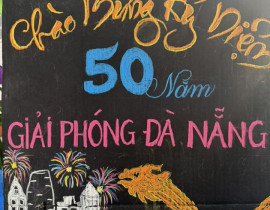 Chào Mừng Kỷ Niệm
50 Năm
GIẢI PHÓNG ĐÀ NẴNG